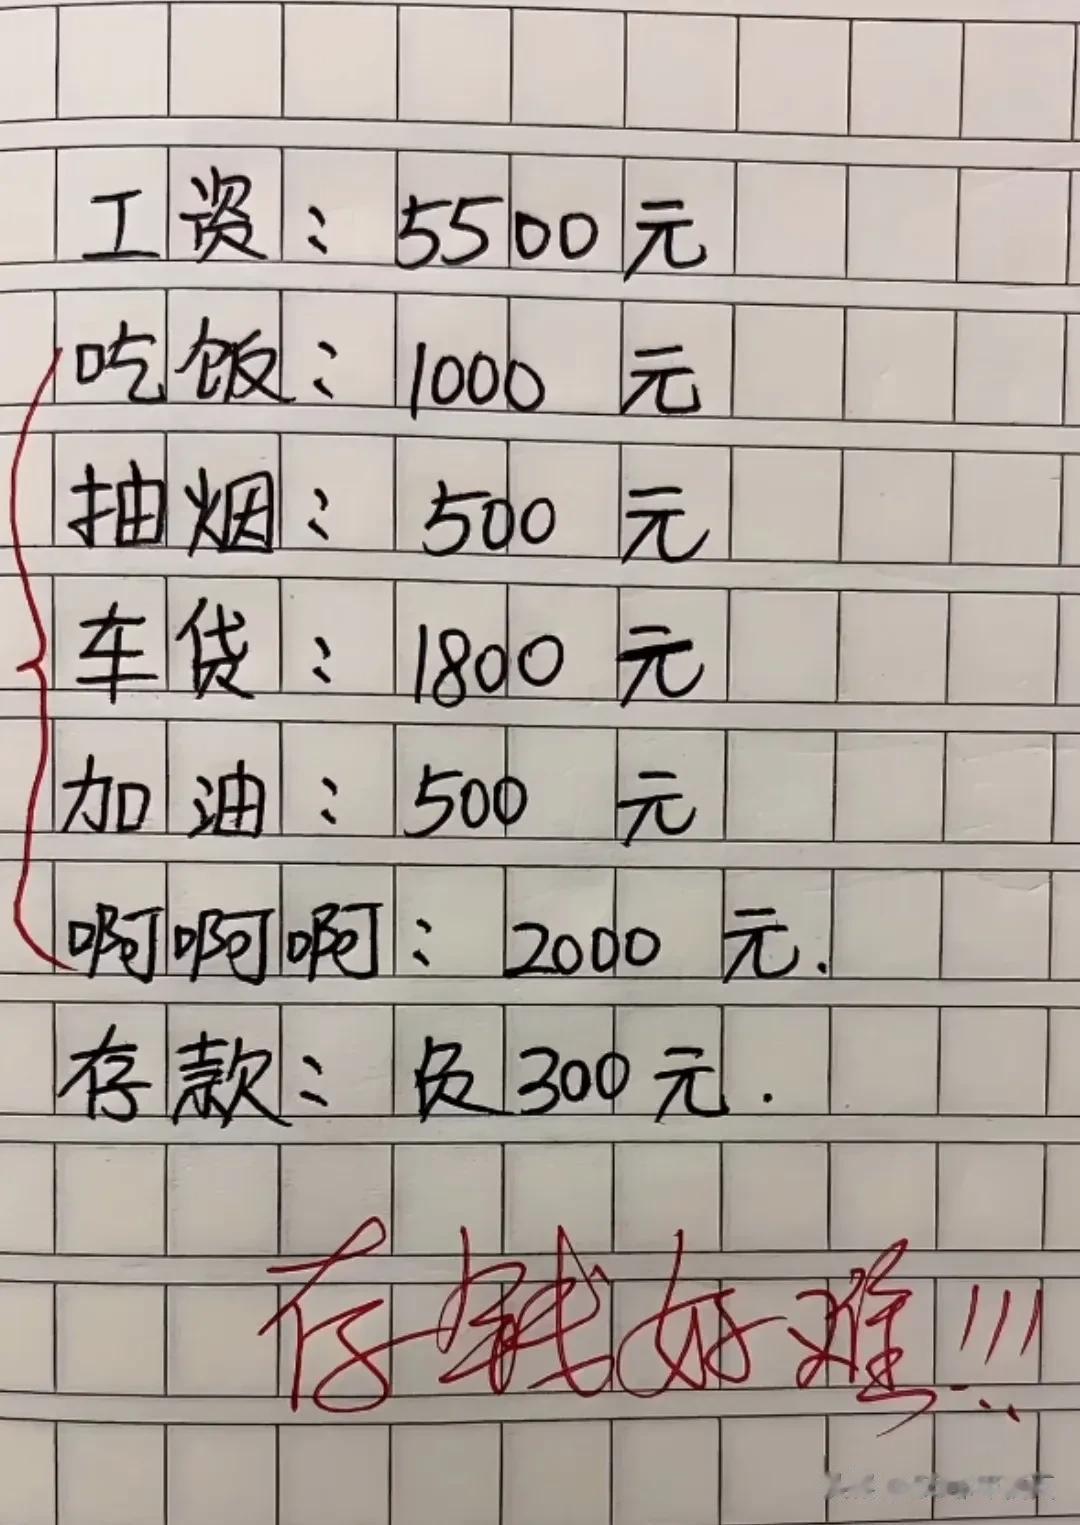 工资：5500元
吃饭：1000元
抽烟：500元
车贷：1800元
加油：500元
啊啊啊：2000元.
存款：负300元.
存钱好难!!!